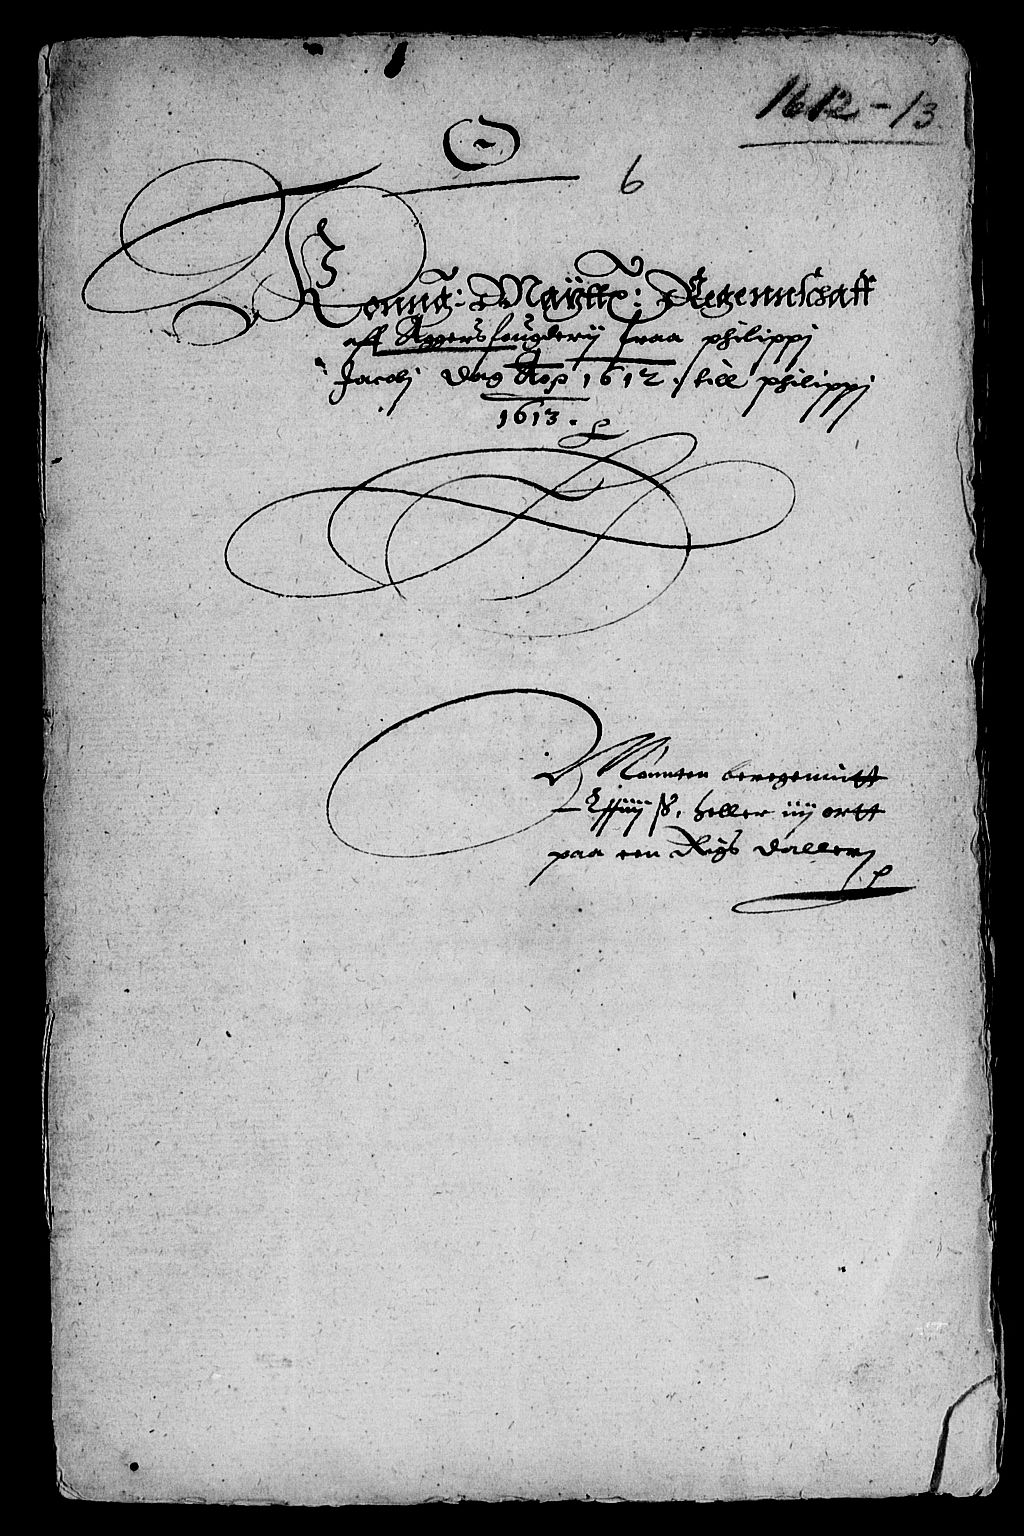 1612-13
6
Konng: Mayttz: Regennschaff
aff Aggers fougderij fraa philippi
Jacobj dag Ao 1612. till philippi
1613.
Monnten beregennitt
ß. heller iiij ortt
paa een Rigs daller